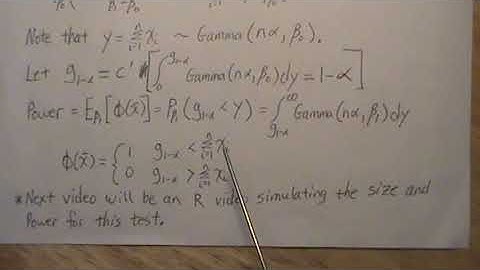 Note that y = Σ_{i=1}^{n} x_i ~ Gamma(nα, β_0).
Let g_{1-α} = c' [∫_0^{g_{1-α}} Gamma(nα, β_0)dy = 1-α]
Power = E_{β_1}[ϕ(x̄)] = P_{β_1}(g_{1-α} < Y) = ∫_{g_{1-α}}^{∞} Gamma(nα, β_1)dy
ϕ(x̄) = { 1 g_{1-α} < Σ_{i=1}^{n} x_i
0 g_{1-α} > Σ_{i=1}^{n} x_i
*Next video will be an R video simulating the size and
Power for this test.